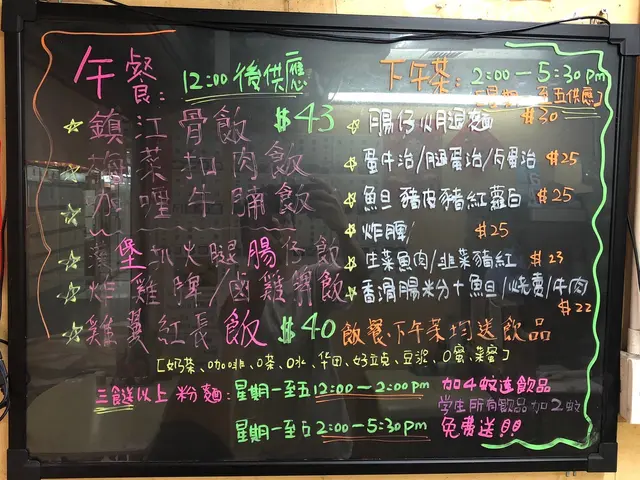 午餐: 12:00後供應
鎮江骨飯 $43
梅菜扣肉飯
加喱牛腩飯
扒火腿腸仔飯
炸雞脾/鹵雞髀飯
雞翼紅長飯 $40
下午茶: 2:00-5:30pm
[星期一至五供應]
腸仔火腿麵 $30
蛋牛治/腿蛋治/肉蛋治 $25
魚旦豬皮豬紅蘿白 $25
炸脾 $25
生菜魚肉/韭菜豬紅 $23
香滑腸粉十魚旦/燒賣/牛肉 $22
飯餐.下午茶均送飲品
[奶茶、0咖啡、0茶、0水、华田、好立克、豆浆、0蜜、菜蜜]
三餸以上粉麵: 星期一至五 12:00-2:00pm 加4蚊送飲品
学生所有飲品加2蚊
星期一至五 2:00-5:30pm 免費送!!